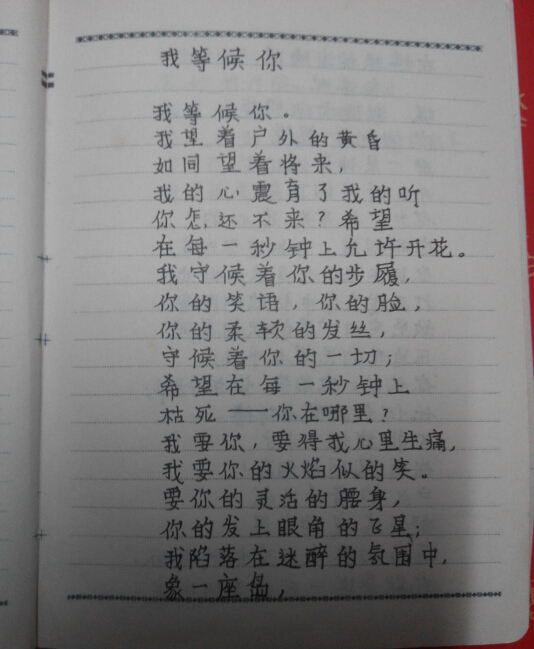 我等候你
我等候你。
我望着户外的黄昏
如同望着将来，
我的心震盲了我的听
你怎还不来？希望
在每一秒钟上允许开花。
我守候着你的步履，
你的笑语，你的脸，
你的柔软的发丝，
守候着你的一切；
希望在每一秒钟上
枯死——你在哪里？
我要你，要得我心里生痛，
我要你的火焰似的笑。
要你的灵活的腰身，
你的发上眼角的飞星；
我陷落在迷醉的氛围中，
象一座岛，